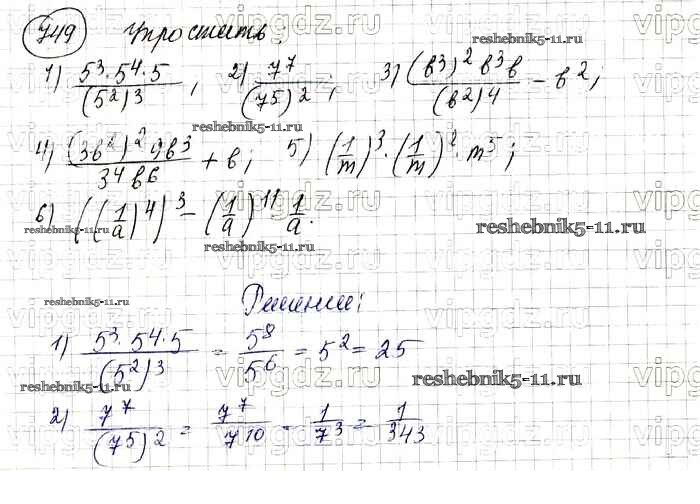 749 Упростить.
1) 5³·5⁴·5/(5²)³, 2) 7⁷/(7⁵)²; 3) (в³)²в³в/(в²)4 − в²;
4) (3в²)²9в³/3⁴в6 + в; 5) (1/m)³·(1/m)²·m⁵;
6) ((1/a)⁴)³ − (1/a)¹¹ 1/a.
Решение:
1) 5³·5⁴·5/(5²)³ = 5⁸/5⁶ = 5² = 25
2) 7⁷/(7⁵)² = 7⁷/7¹⁰ = 1/7³ = 1/343
vipgdz.ru
reshebnik5-11.ru